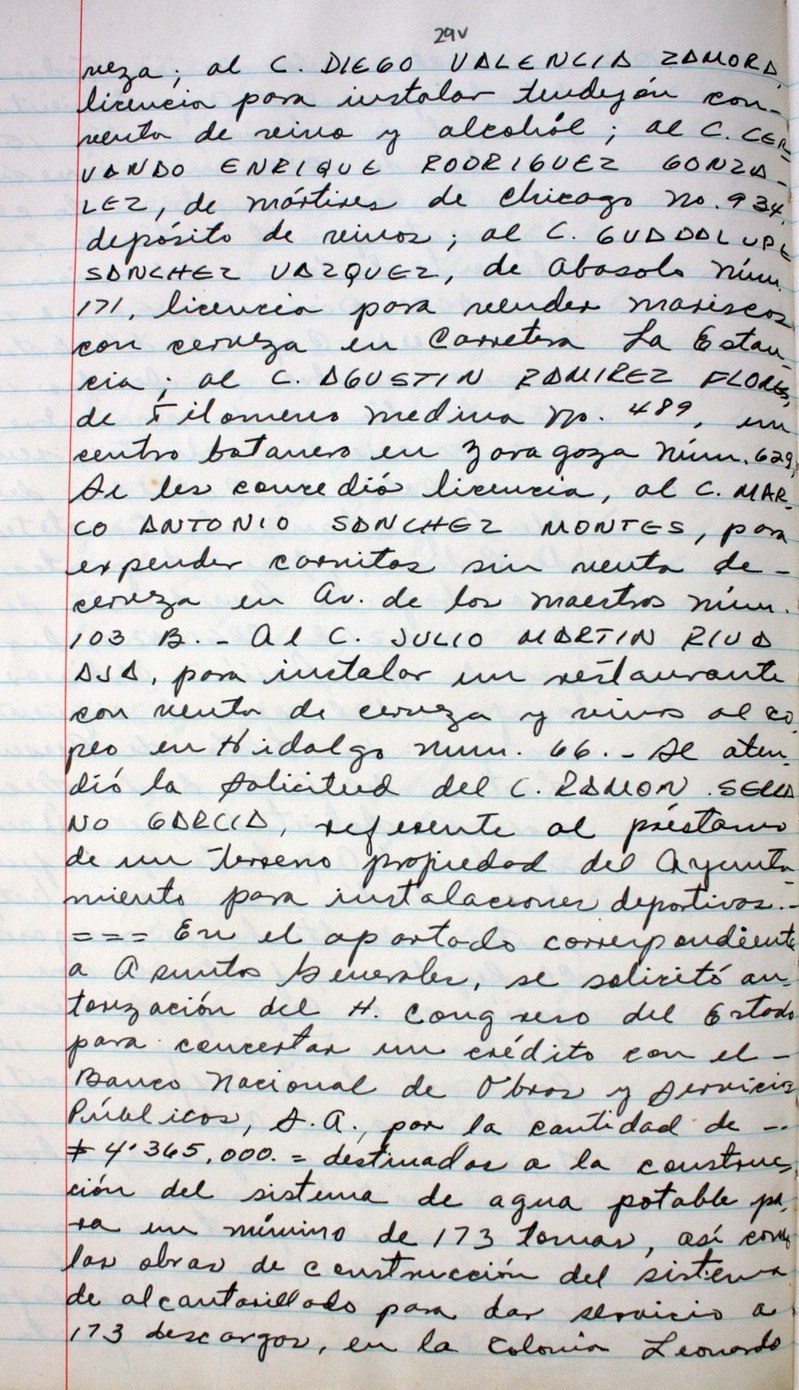 29v
veza; al C. DIEGO VALENCIA ZAMORA,
licencia para instalar tendejón con-
venta de vino y alcohól; al C. CER
VANDO ENRIQUE RODRIGUEZ GONZA-
LEZ, de mártires de Chicago No. 934,
depósito de vinos; al C. GUADALUPE
SANCHEZ VAZQUEZ, de Abasolo Núm.
171, licencia para vender mariscos
con cerveza en Carretera La Estan
cia; al C. AGUSTIN RAMIREZ FLORES,
de Filomeno Medina No. 489, un
centro botanero en Zaragoza Núm. 629,
Se les concedió licencia, al C. MAR-
CO ANTONIO SANCHEZ MONTES, para
expender carnitas sin venta de-
cerveza en Av. de los Maestros Núm.
103 B.- Al C. JULIO MARTIN RIVA
AJA, para instalar un restaurante
con venta de cerveza y vinos al co-
peo en Hidalgo Núm. 66.- Se aten-
dió la solicitud del C. RAMON SERRA
NO GARCIA, referente al préstamo
de un terreno propiedad del Ayunta-
miento para instalaciones deportivas.-
=== En el apartado correspondiente
a Asuntos Generales, se solicitó au-
torización del H. Congreso del Estado
para concertar un crédito con el -
Banco Nacional de Obras y Servicios
Públicos, S.A., por la cantidad de --
$ 4'365,000.= destinados a la construc-
ción del sistema de agua potable pa-
ra un mínimo de 173 tomas, así como
las obras de construcción del sistema
de alcantarillado para dar servicio a
173 descargas, en la Colonia Leonardo